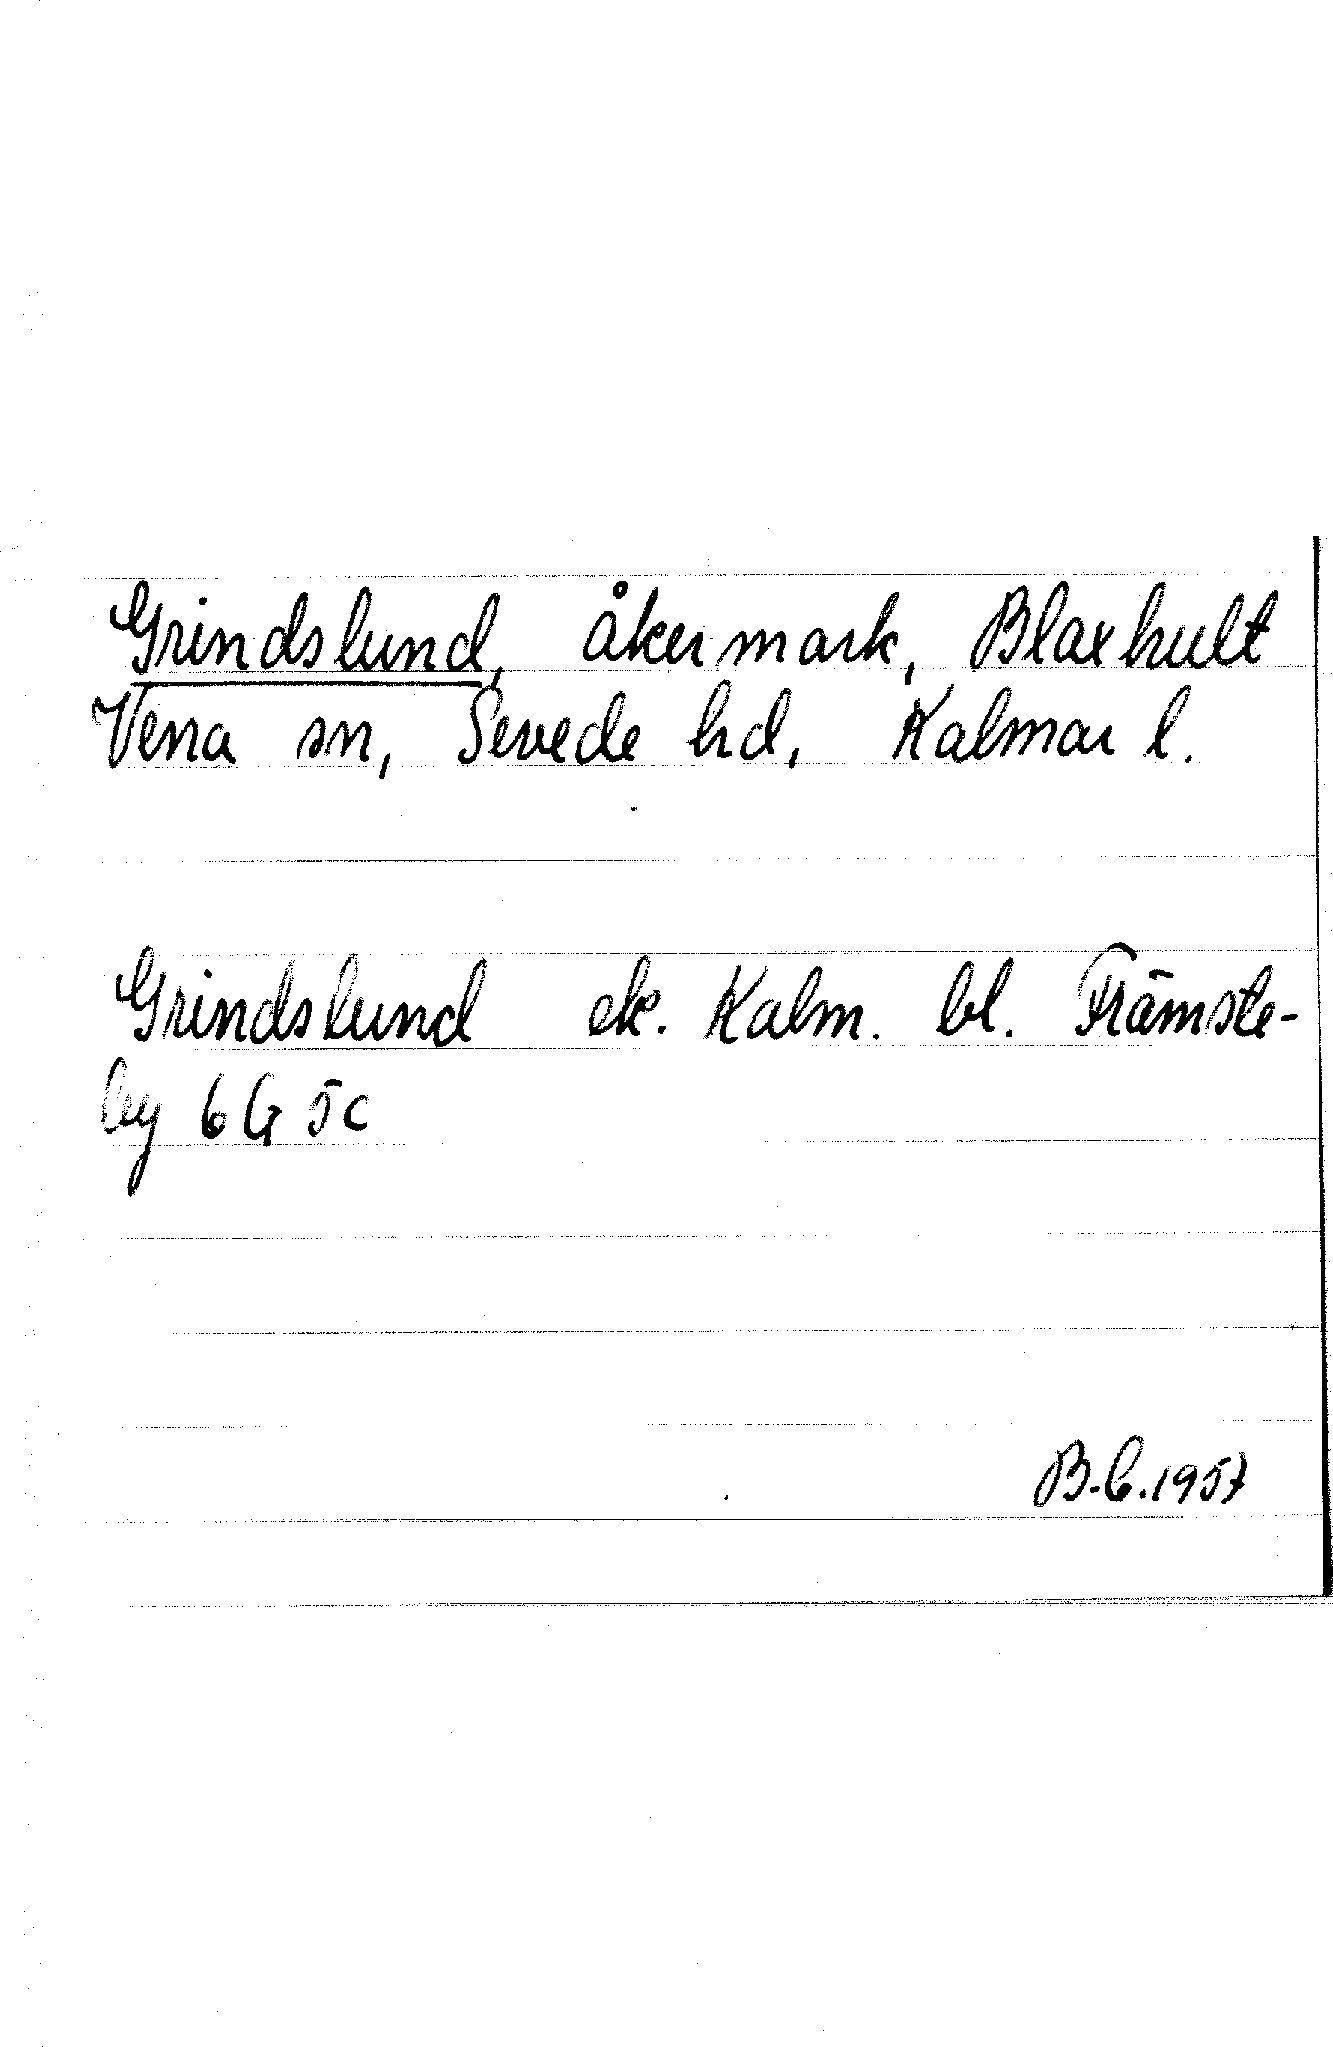 Grindslund, åkermark, Blaxhult
Vena sn, Sevede hd, Kalmar l.
Grindslund ek. Kalm. bl. Främste-
by 6G 5c
B.C.1957